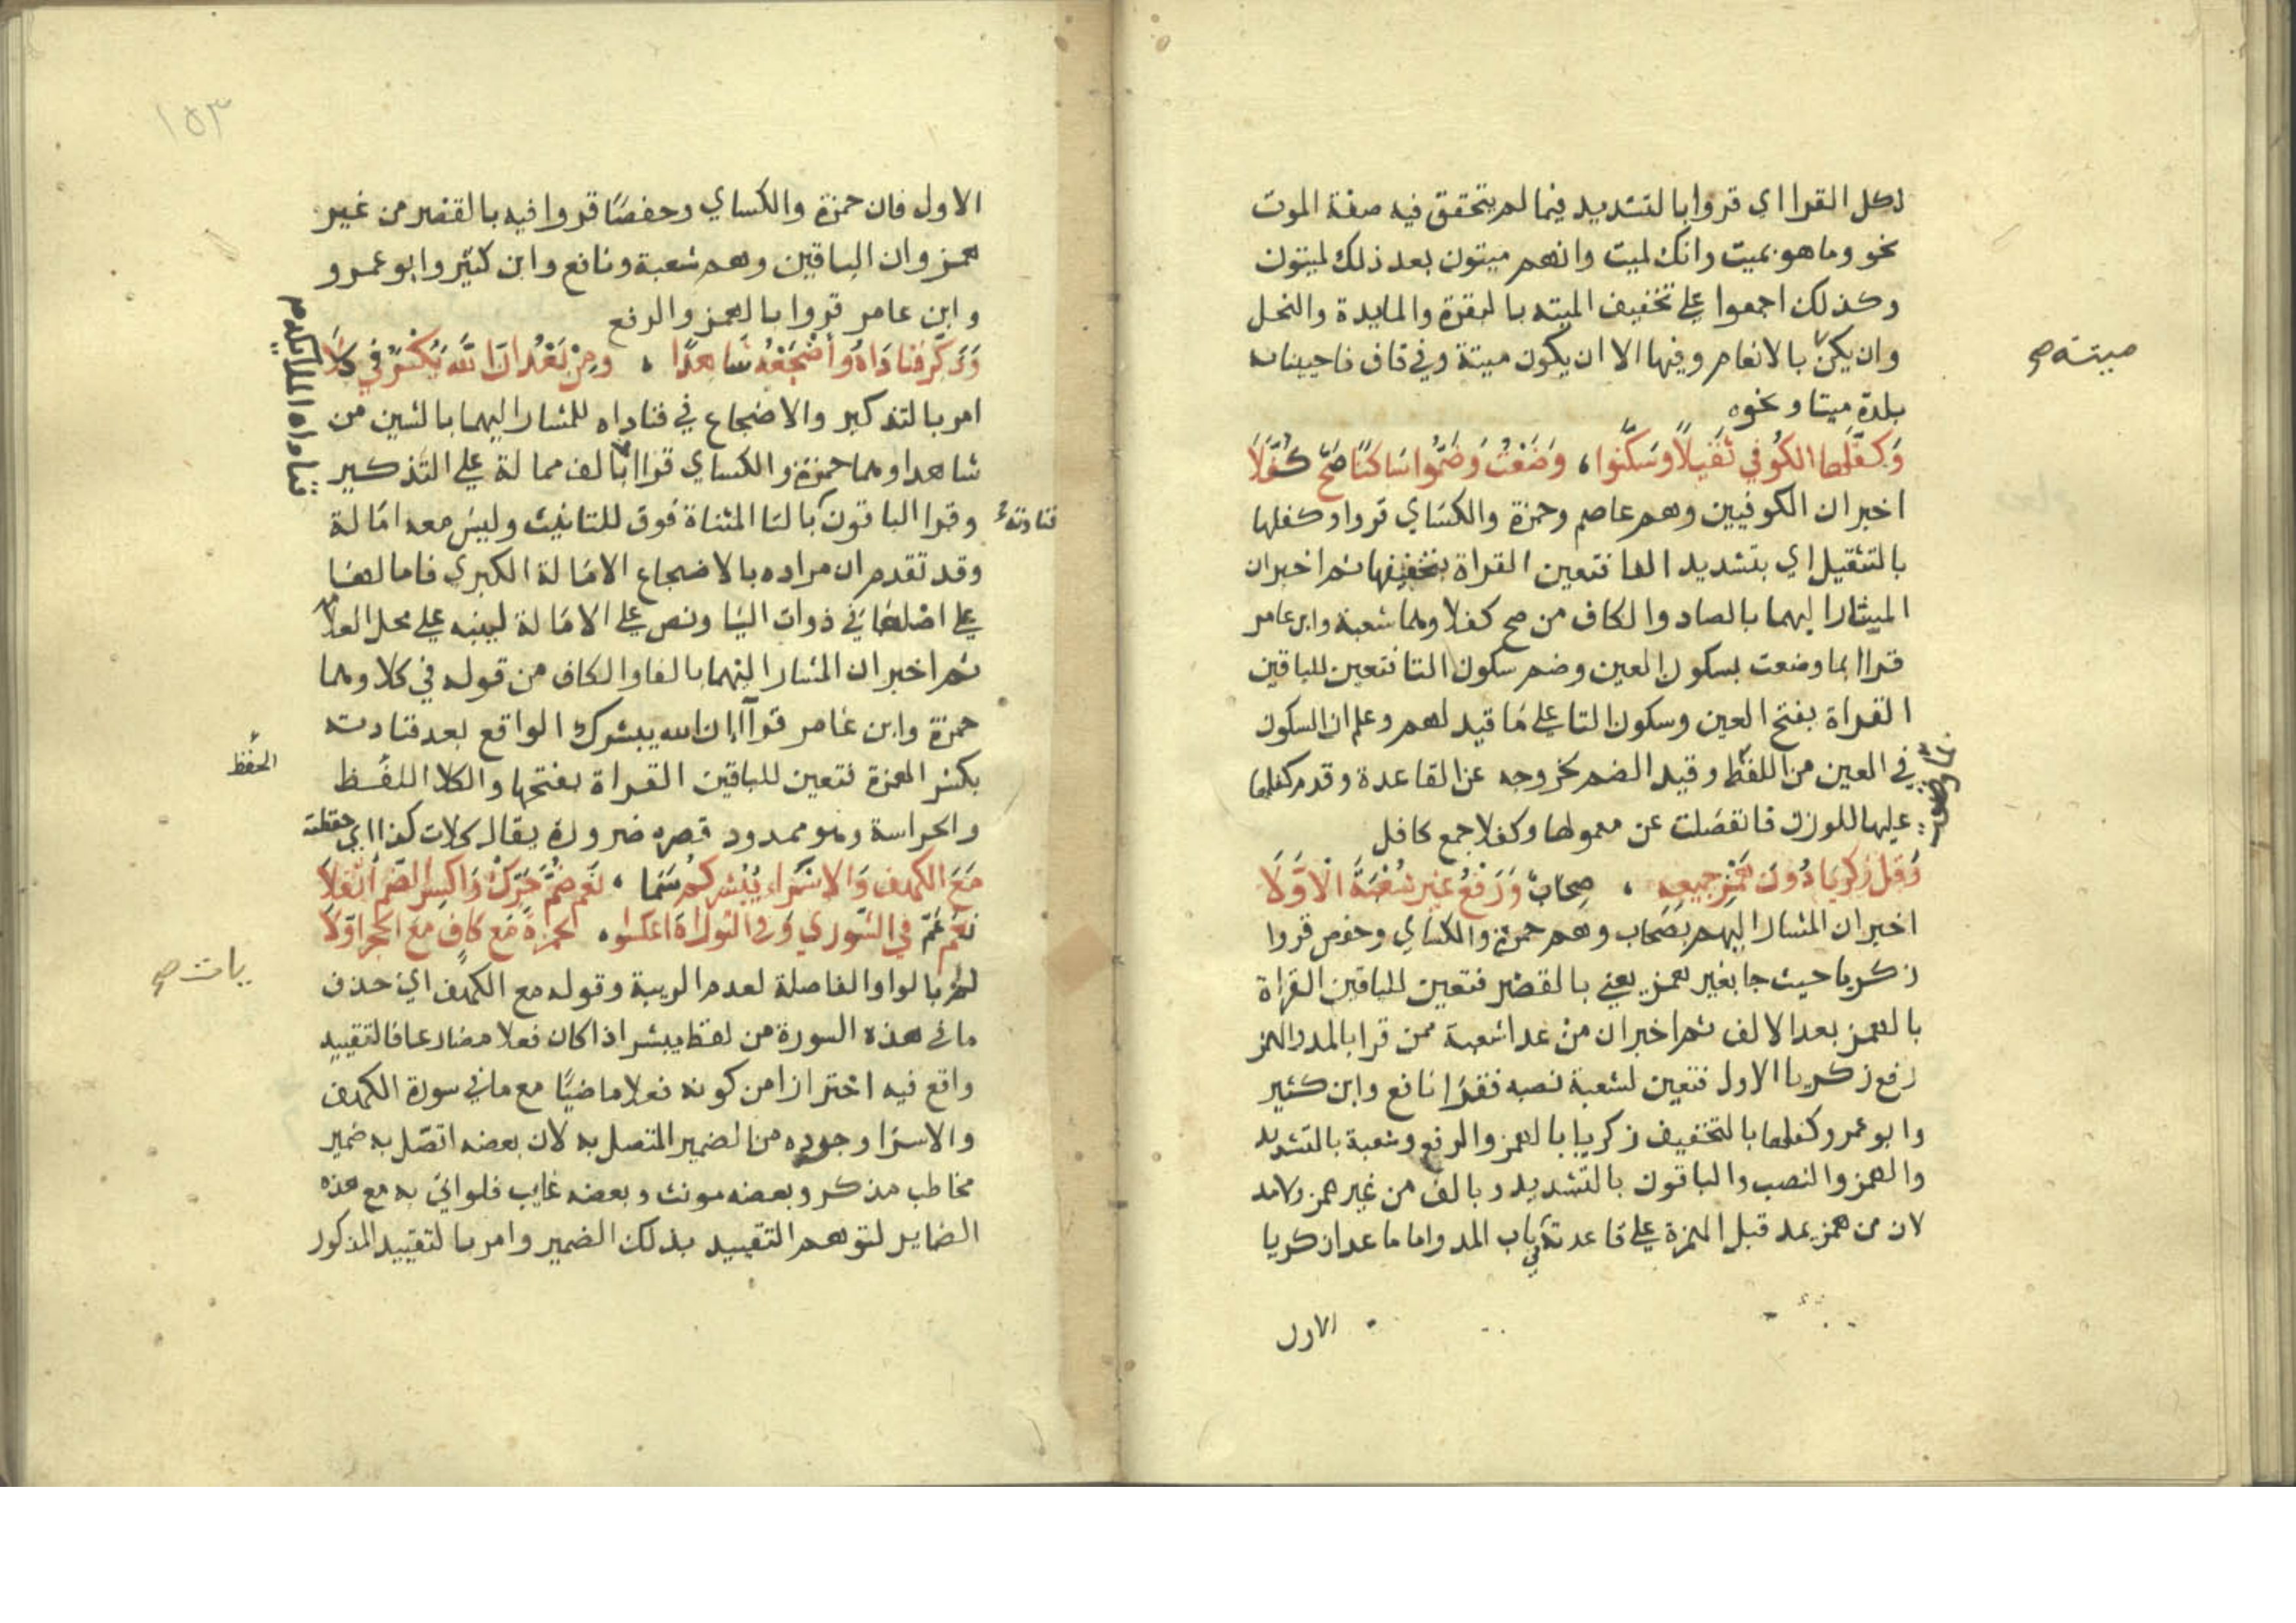 لكل القرا اي قروا بالتشديد فيما لم يتحقق فيه صفة الموت
نحو وما هو بميت وانك لميت وانهم ميتون بعد ذلك لميتون
وكذلك اجمعوا على تخفيف الميته بالبقرة والمايدة والنحل
وان يكن بالانعام وفيها الا ان يكون ميتة وفي قاف فاحيينا به
ميتة صح
بلدة ميتا ونحوه
وَكَفَّلَهَا الكُوفي ثَقيلاً وَسَكَّنوا، وَضَعْتُ وَضَمُّوا سَاكنًا صَحَّ كُفَّلَا
اخبر ان الكوفيين وهم عاصم وحمزة والكساي قروا وكفلها
بالتثقيل اي بتشديد الفا فتعين القراة بتخفيفها ثم اخبر ان
المشار اليهما بالصاد والكاف من صح كفلا وهما شعبة وابن عامر
قراا بما وضعت بسكون العين وضم سكون التا فتعين للباقين
القراة بفتح العين وسكون التا على ما قيد لهم وعلم ان السكون
في العين من اللفظ وقيد الضم لخروجه عن القاعدة وقدم كفلها
عليها للوزن فانفصلت عن معمولها وكفلا جمع كافل
وَقُل زكريا دُونَ هَمْزِ جميعه ، صِحَابٌ وَرَفْعٌ غير شُعْبَةَ الْاَوَّلَا
اخبر ان المشار اليهم بصحاب وهم حمزة والكساي وحفص قروا
زكريا حيث جا بغير همز يعني بالقصر فتعين للباقين القراة
بالهمز بعد الالف ثم اخبر ان من عدا شعبة ممن قرا بالمد والهمز
رفع زكريا الاول فتعين لشعبة نصبه فقرا نافع وابن كثير
وابو عمرو كفلها بالتخفيف زكريا بالهمز والرفع وشعبة بالتشديد
والهمز والنصب والباقون بالتشديد وبالف من غير همز ولا مد
لان من همز يمد قبل الهمزة على قاعدته في باب المد واما ما عدا زكريا
الاول
١٥٣
الاول فان حمزة والكساي وحفصا قروا فيه بالقصر من غير
همز وان الباقين وهم شعبة ونافع وابن كثير وابو عمرو
وابن عامر قروا بالهمز والرفع
وَذَكِّرْ فنادَاهُ وأَضْجِعْهُ شَاهِدًا ، ومِنْ بَعْدُ انَّ اللَّه يُكْسَرُ في كلَا
امر بالتذكير والاضجاع في فناداه للمشار اليهما بالشين من
شاهدا وهما حمزة والكساي قراا بالف ممالة على التذكير
وقرا الباقون بالتا المثناة فوق للتانيث وليس معه امالة
فنادته
وقد تقدم ان مراده بالاضجاع الامالة الكبري فامالهما
على اصلهما في ذوات اليا ونص على الامالة لينبه على محل العلامة
ثم اخبر ان المشار اليهما بالفا والكاف من قوله في كلا وهما
حمزة وابن عامر قراا ان الله يبشرك الواقع بعد فنادته
بكسر الهمزة فتعين للباقين القراة بفتحها والكلا اللفظ
الحفظ
والحراسة وهو ممدود قصره ضرورة يقال كلات كذا اي حفظته
مَعَ الكهف وَالاسْرَاء يُبْشركُم سَمَا ، نَعَم ضُمَّ حَرِّكْ وَاكسِر الضَّم أثْقَلَا
نَعَم عَمَّ في الشورى وَفي التوبَة اعكسُوا ، لحمزةَ مَع كَافٍ مَعَ الحجر اوّلَا
لم يات بالواو الفاصلة لعدم الريبة وقوله مع الكهف اي خذ
يات صح
ما في هذه السورة من لفظ يبشر اذا كان فعلا مضارعا فالتقييد
واقع فيه احترازا من كونه فعلا ماضيًا مع ما في سورة الكهف
والاسرا وجوده من الضمير المتصل به لان بعضه اتصل به ضمير
مخاطب مذكر وبعضه مونث وبعضه غايب فلو اتي به مع هذه
الضماير لتوهم التقييد بذلك الضمير وامر بالتقييد المذكور